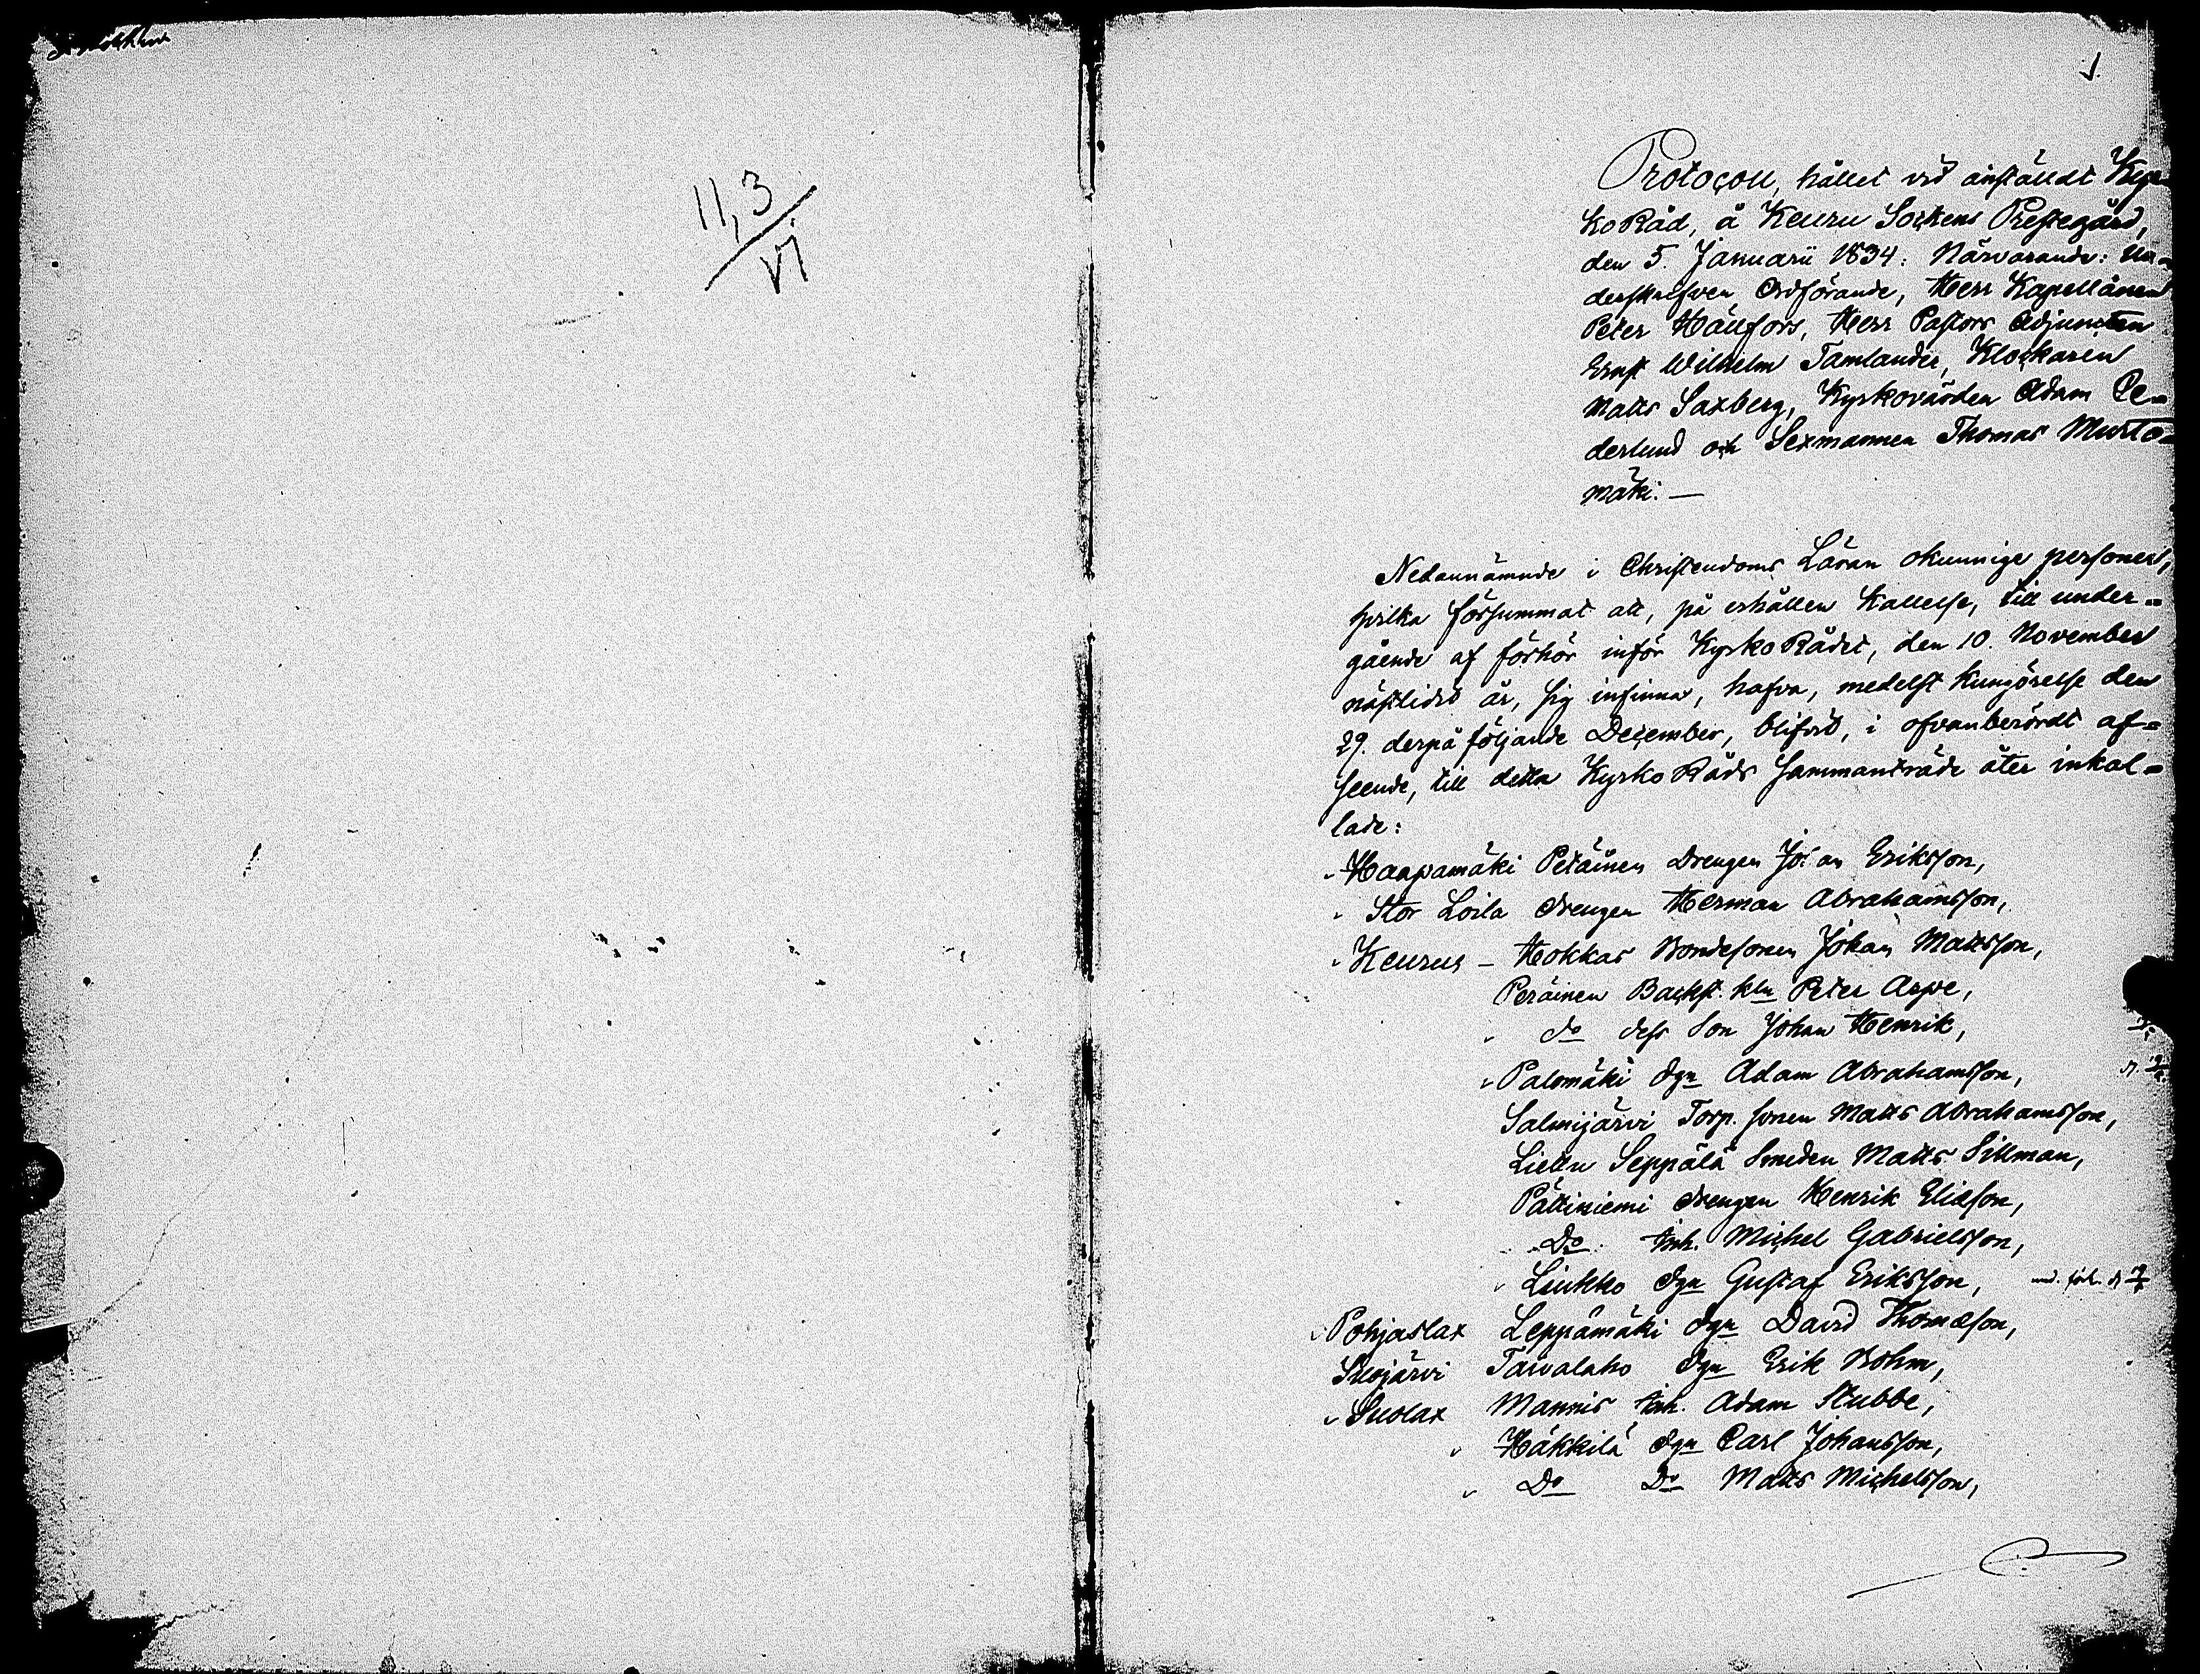 11,3
VI
1.
Protocoll, hållet vid anstäldt Kyr-
ko Råd, å Keuru Sockens Prestegård,
den 5. Januarii 1834: Närvarande: un-
derskrefven Ordförande, Herr Kapellanen
Peter Hällfors, Herr Pastors Adjuncten
Ernst Wilhelm Tamlander, Klockaren
Matts Saxberg, Kyrkovärden Adam Ce-
derlund och Sexmannen Thomas Murto-
mäki. —
Nedannämnde i Christendoms Läran okunnige personer,
hvilka försummat att, på erhållen Kallelse, till under-
gående af förhör inför Kyrko Rådet, den 10. November
nästlidet år, sig infinna, hafva, medelst Kungörelse den
29. derpå följande December, blifvit, i ofvanberördt af-
seende, till detta Kyrko Råds sammanträde åter inkal-
lade:
Haapamäki Petäinen Drengen Johan Eriksson,
Stor Loila drengen Herman Abrahamsson,
Keurus — Hokkas Bondesonen Johan Mattsson,
Peräinen Backst. kln Peter Aspe,
do dess Son Johan Henrik,
Palomäki dgn Adam Abrahamsson,
Salmijärvi Torp. sonen Matts Abrahamsson,
Liettu Seppälä Smeden Matts Sillman,
Pättiniemi drengen Henrik Eliasson,
Do Inh. Michel Gabrielsson,
Liukko dgn Gustaf Eriksson,
Pohjaslax Leppämäki dgn David Thomasson,
Suojärvi Tarvalaho dgn Erik Bohm,
Suolax Mannis Inh. Adam Stubbe,
Häkkilä dgn Carl Johansson,
Do Do Matts Michelsson,